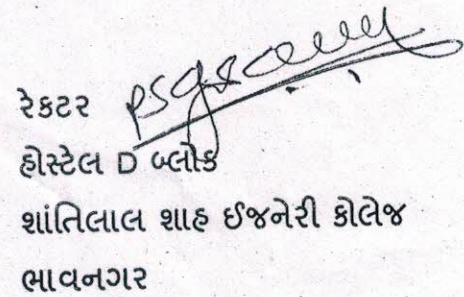 રેકટર
હોસ્ટેલ D બ્લોક
શાંતિલાલ શાહ ઈજનેરી કોલેજ
ભાવનગર